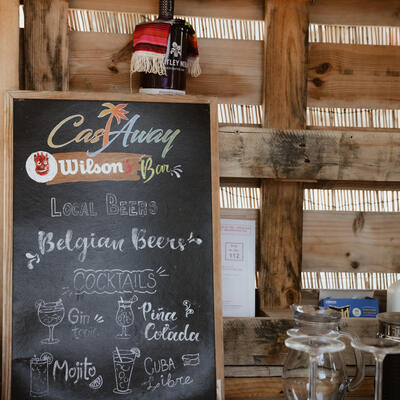 CastAway
Wilson's Bar
Local Beers
Belgian Beers
COCKTAILS
Gin
tonic
Piña
Colada
Mojito
CUBA
Libre
112